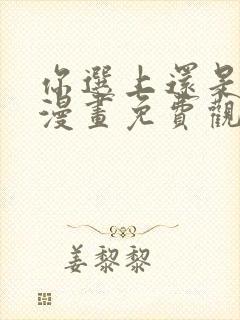 你選上還是
漫畫免費觀
姜黎黎